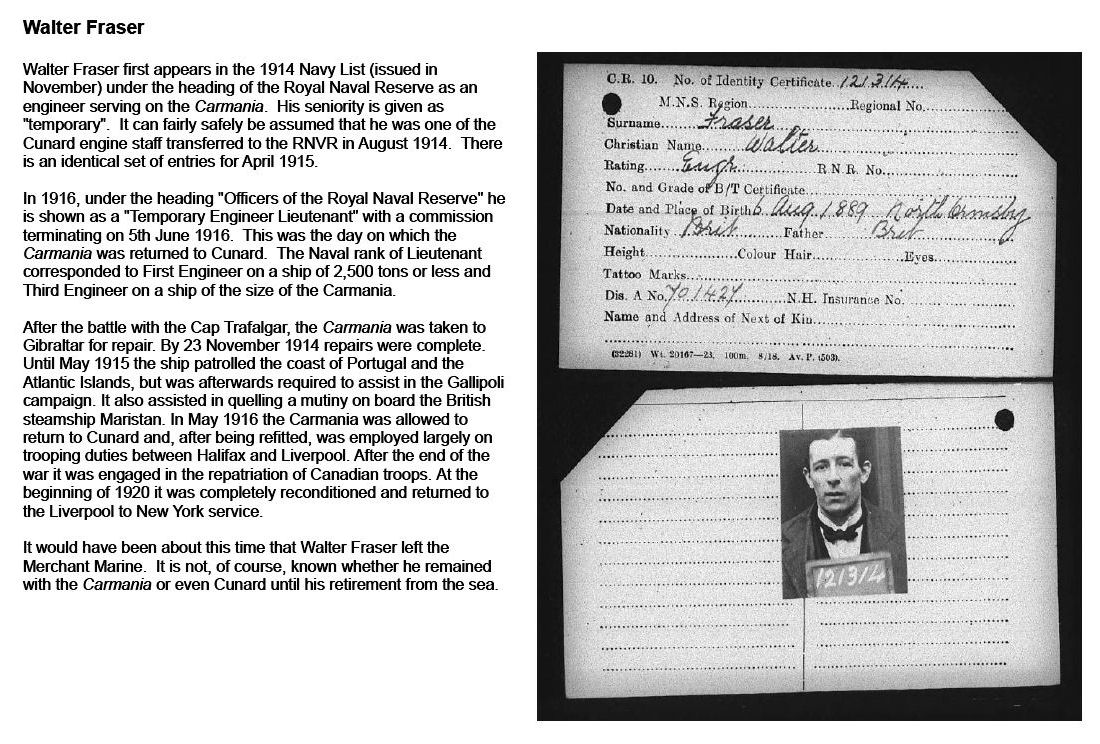 Walter Fraser
Walter Fraser first appears in the 1914 Navy List (issued in
November) under the heading of the Royal Naval Reserve as an
engineer serving on the Carmania. His seniority is given as
"temporary". It can fairly safely be assumed that he was one of the
Cunard engine staff transferred to the RNVR in August 1914. There
is an identical set of entries for April 1915.
In 1916, under the heading "Officers of the Royal Naval Reserve" he
is shown as a "Temporary Engineer Lieutenant" with a commission
terminating on 5th June 1916. This was the day on which the
Carmania was returned to Cunard. The Naval rank of Lieutenant
corresponded to First Engineer on a ship of 2,500 tons or less and
Third Engineer on a ship of the size of the Carmania.
After the battle with the Cap Trafalgar, the Carmania was taken to
Gibraltar for repair. By 23 November 1914 repairs were complete.
Until May 1915 the ship patrolled the coast of Portugal and the
Atlantic Islands, but was afterwards required to assist in the Gallipoli
campaign. It also assisted in quelling a mutiny on board the British
steamship Maristan. In May 1916 the Carmania was allowed to
return to Cunard and, after being refitted, was employed largely on
trooping duties between Halifax and Liverpool. After the end of the
war it was engaged in the repatriation of Canadian troops. At the
beginning of 1920 it was completely reconditioned and returned to
the Liverpool to New York service.
It would have been about this time that Walter Fraser left the
Merchant Marine. It is not, of course, known whether he remained
with the Carmania or even Cunard until his retirement from the sea.
C.R. 10. No. of Identity Certificate 121314
M.N.S. Region Regional No.
Surname Fraser
Christian Name Walter
Rating Engr R.N.R. No.
No. and Grade of B/T Certificate
Date and Place of Birth 6 Aug. 1889 North Ormsby
Nationality Brit Father Brit
Height Colour Hair Eyes
Tattoo Marks
Dis. A No. 701427 N.H. Insurance No.
Name and Address of Next of Kin
(32281) Wt. 20167—23. 100m. 8/18. Av. P. (503).
121314